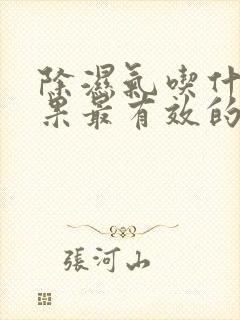 除濕氣喫什
果最有效的
張河山